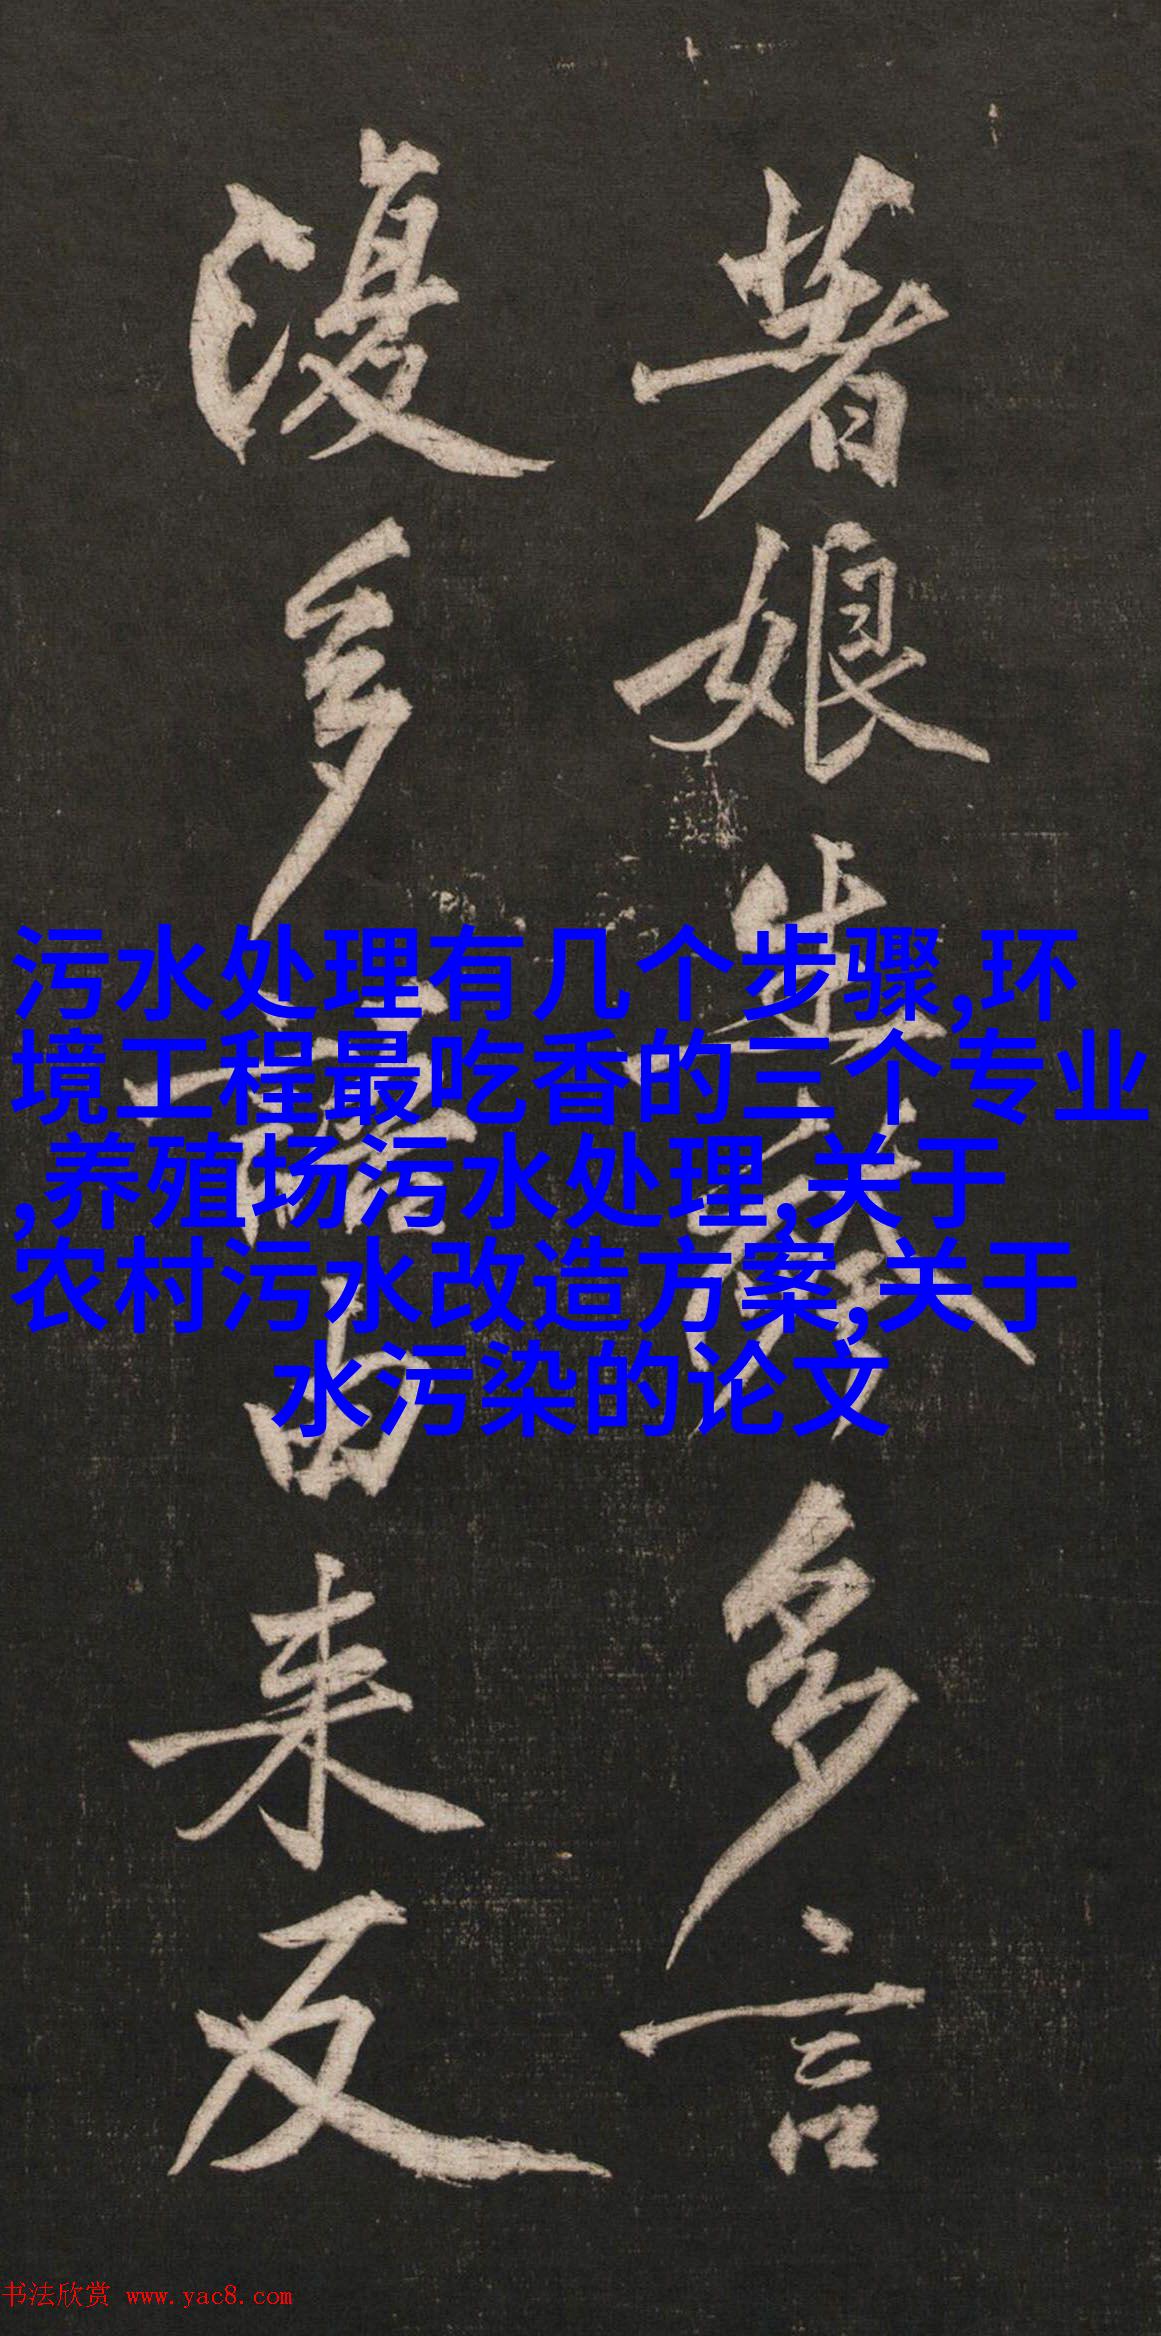 著娘生多言
復多語由来反
污水处理有几个步骤,环
境工程最吃香的三个专业
,养殖场污水处理,关于
农村污水改造方案,关于
水污染的论文
书法欣赏 www.yac8.com